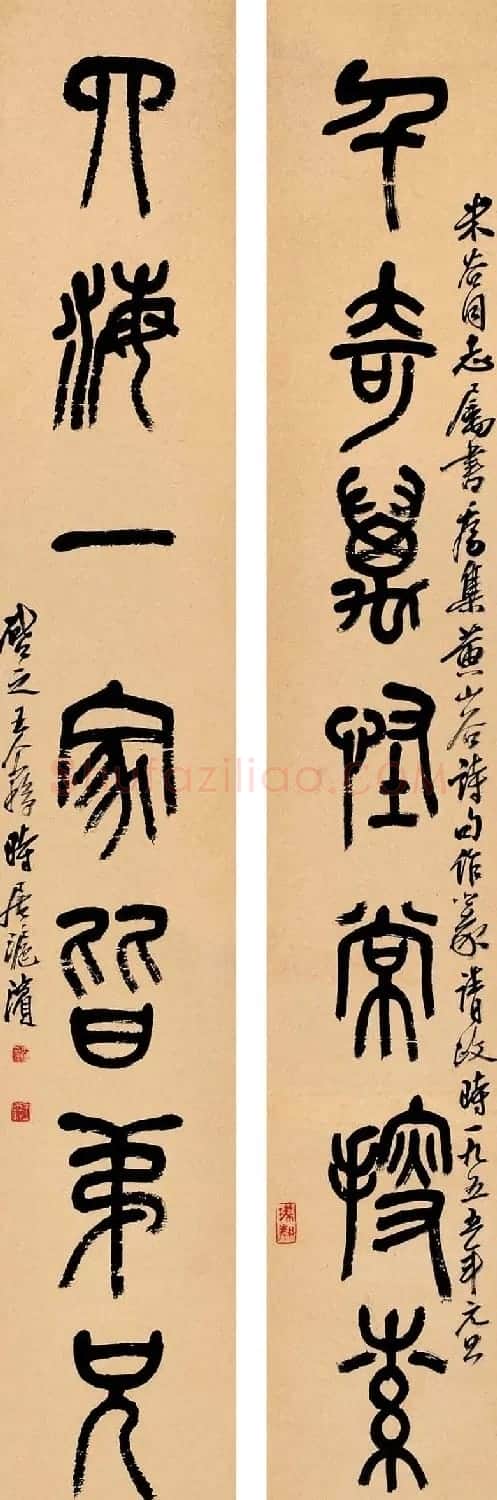 千奇萬怪常搜索
米谷同志屬書為集黃山谷詩句作篆請政時一九五五年元旦
四海一家皆弟兄
啓之王个簃時居滬濱
shufaziliao.COM